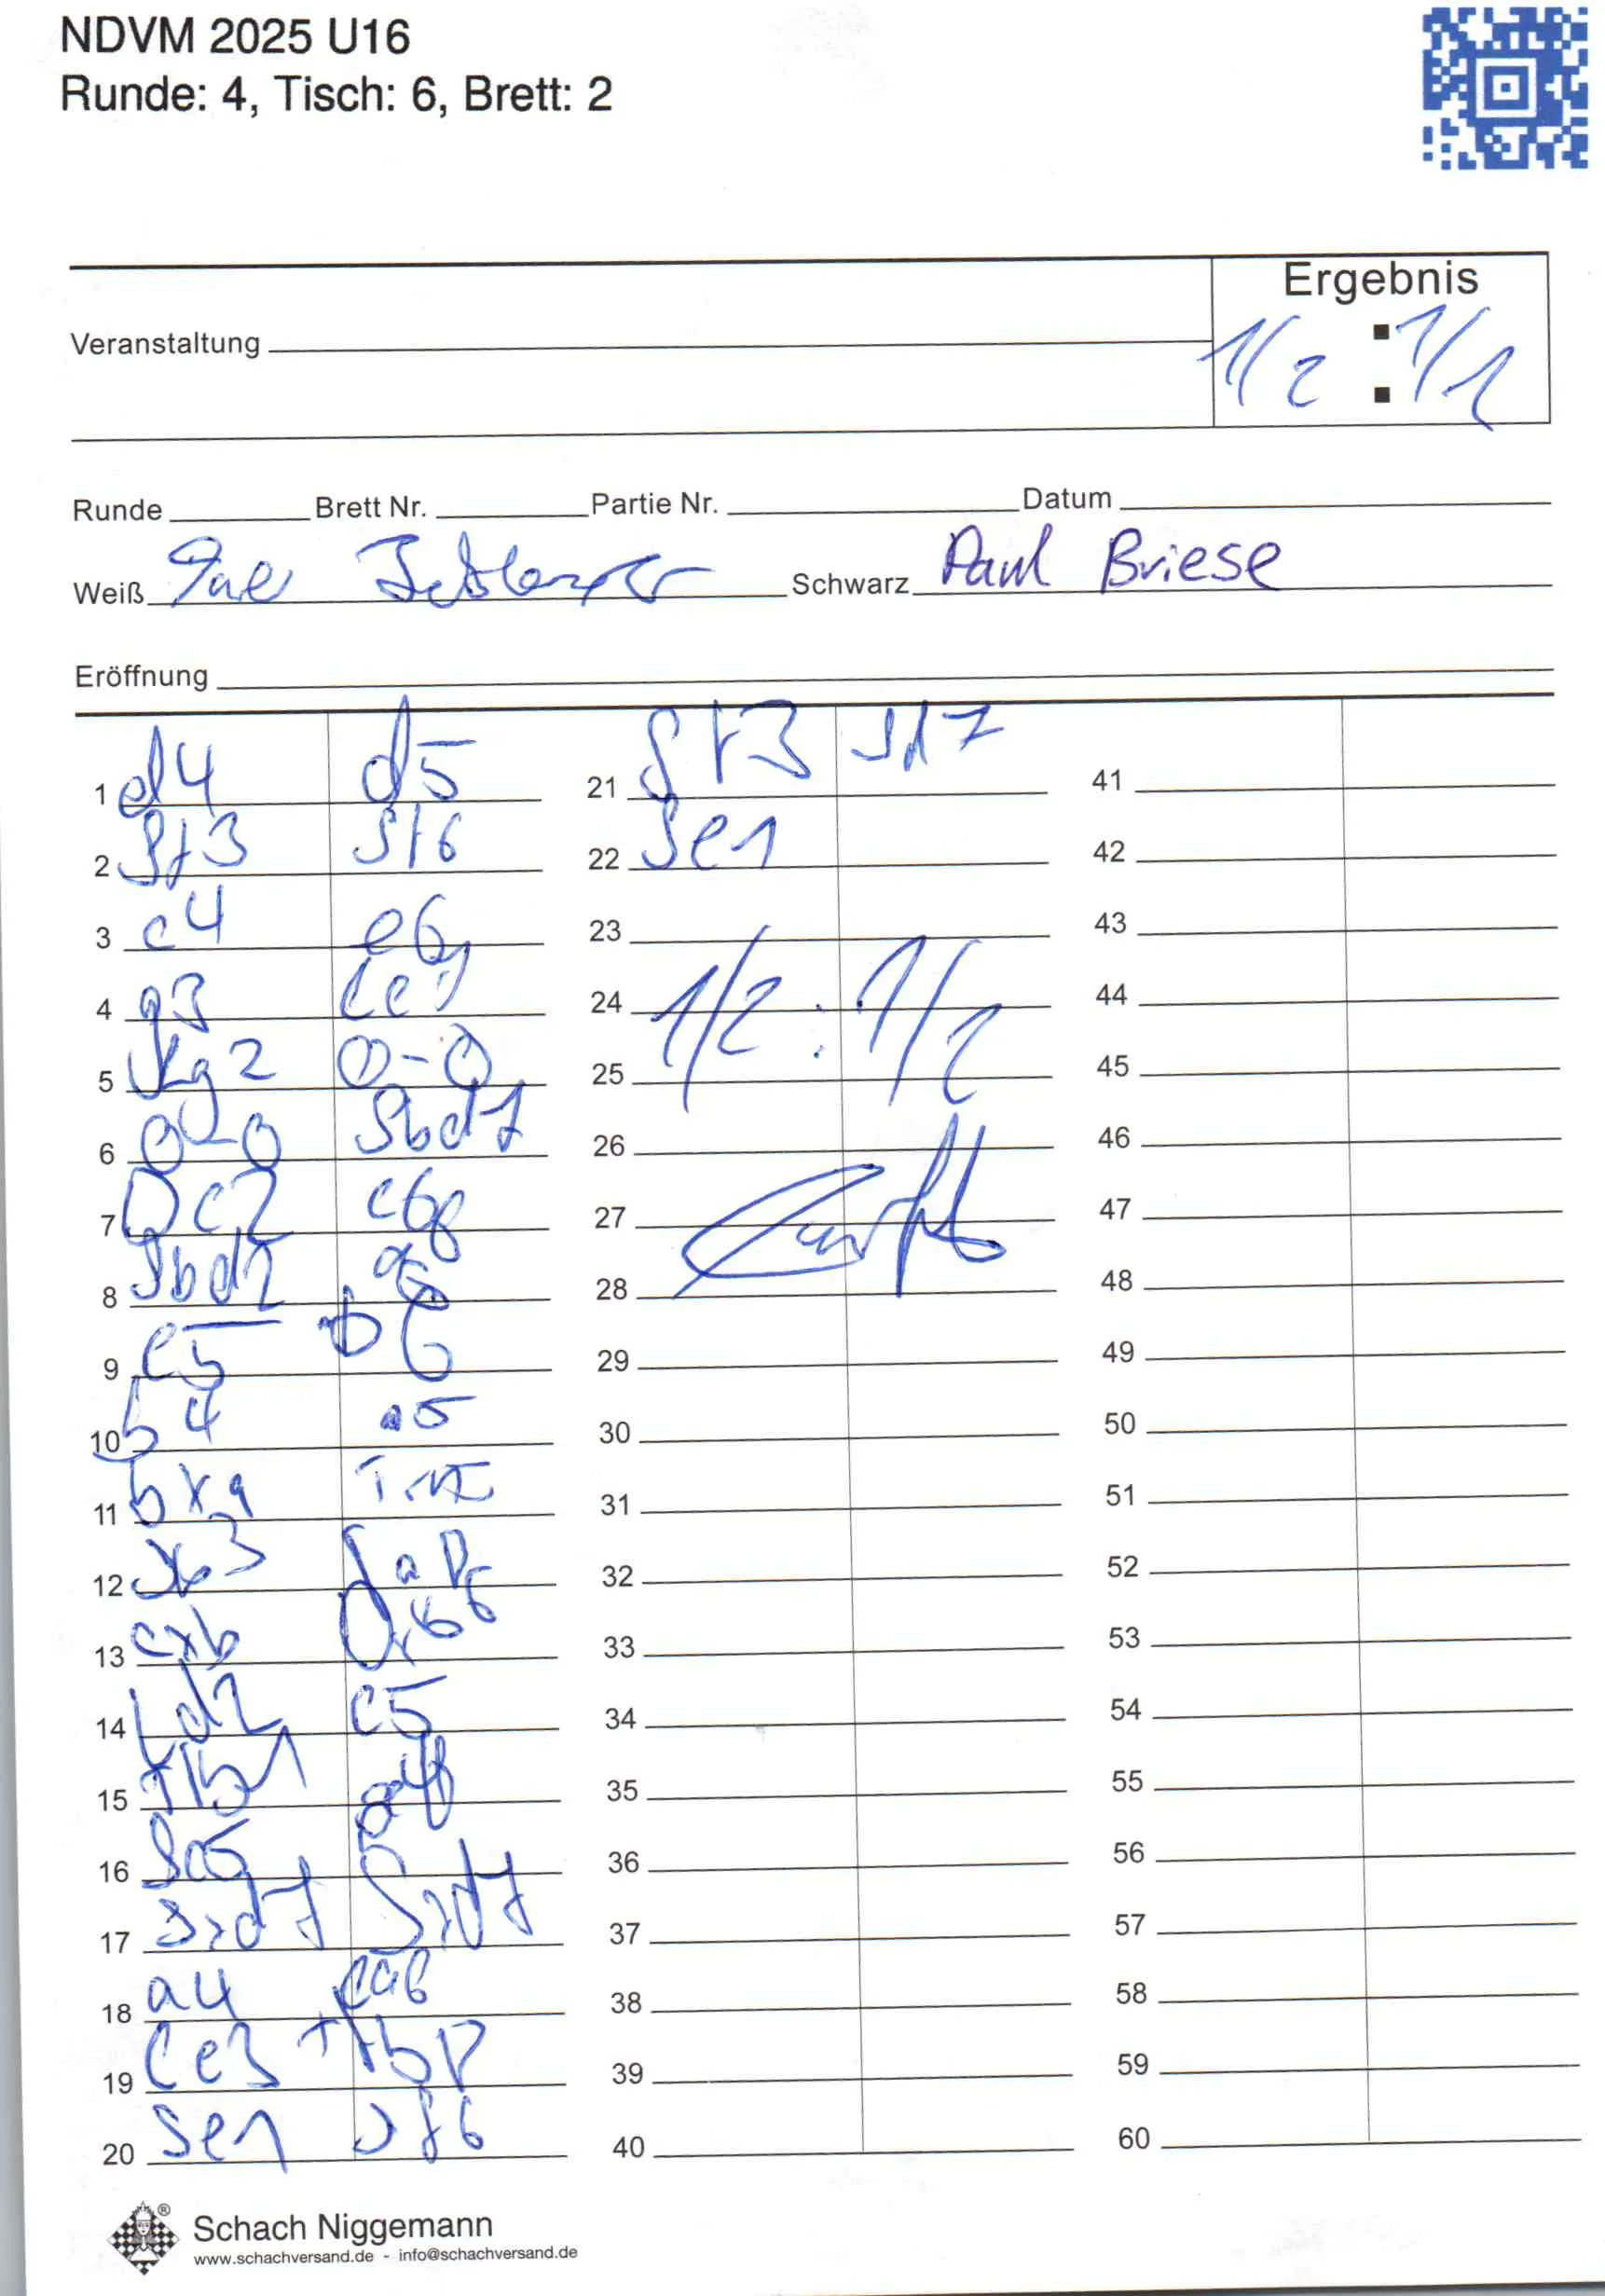 NDVM 2025 U16
Runde: 4, Tisch: 6, Brett: 2
Ergebnis
1/2 : 1/2
Veranstaltung
Runde Brett Nr. Partie Nr. Datum
Weiß Schwarz Paul Briese
Eröffnung
1 d4 d5
2 Sf3 Sf6
3 c4 e6
4 g3 Le7
5 Lg2 0-0
6 0-0 Sbd7
7 Dc2 c6
8 Sbd2 a6
9 c5 b6
10 b4 a5
11 bxa
12 Sb3
13 cxb Dxb6
14 Ld2 c5
15 Tfb1
16 Sa5
17 Sxd7 Sxd7
18 a4 La6
19 Le3
20 Se1 Sf6
21 Sf3 Sd7
22 Se1
23
24 1/2 : 1/2
25
26
27
28
29
30
31
32
33
34
35
36
37
38
39
40
41
42
43
44
45
46
47
48
49
50
51
52
53
54
55
56
57
58
59
60
Schach Niggemann
www.schachversand.de - info@schachversand.de